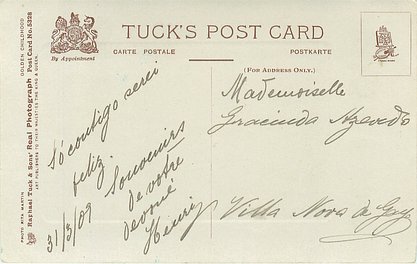 TUCK'S POST CARD
CARTE POSTALE
POSTKARTE
By Appointment
(FOR ADDRESS ONLY.)
GOLDEN CHILDHOOD
Raphael Tuck & Sons' Real Photograph Post Card No. 5328
ART PUBLISHERS TO THEIR MAJESTIES THE KING & QUEEN.
PHOTO RITA MARTIN
Só contigo serei
feliz.
Souvenirs
de votre
devoué
Henri
31/3/09
Mademoiselle
Gracinda Azevedo
Villa Nova de Gaya